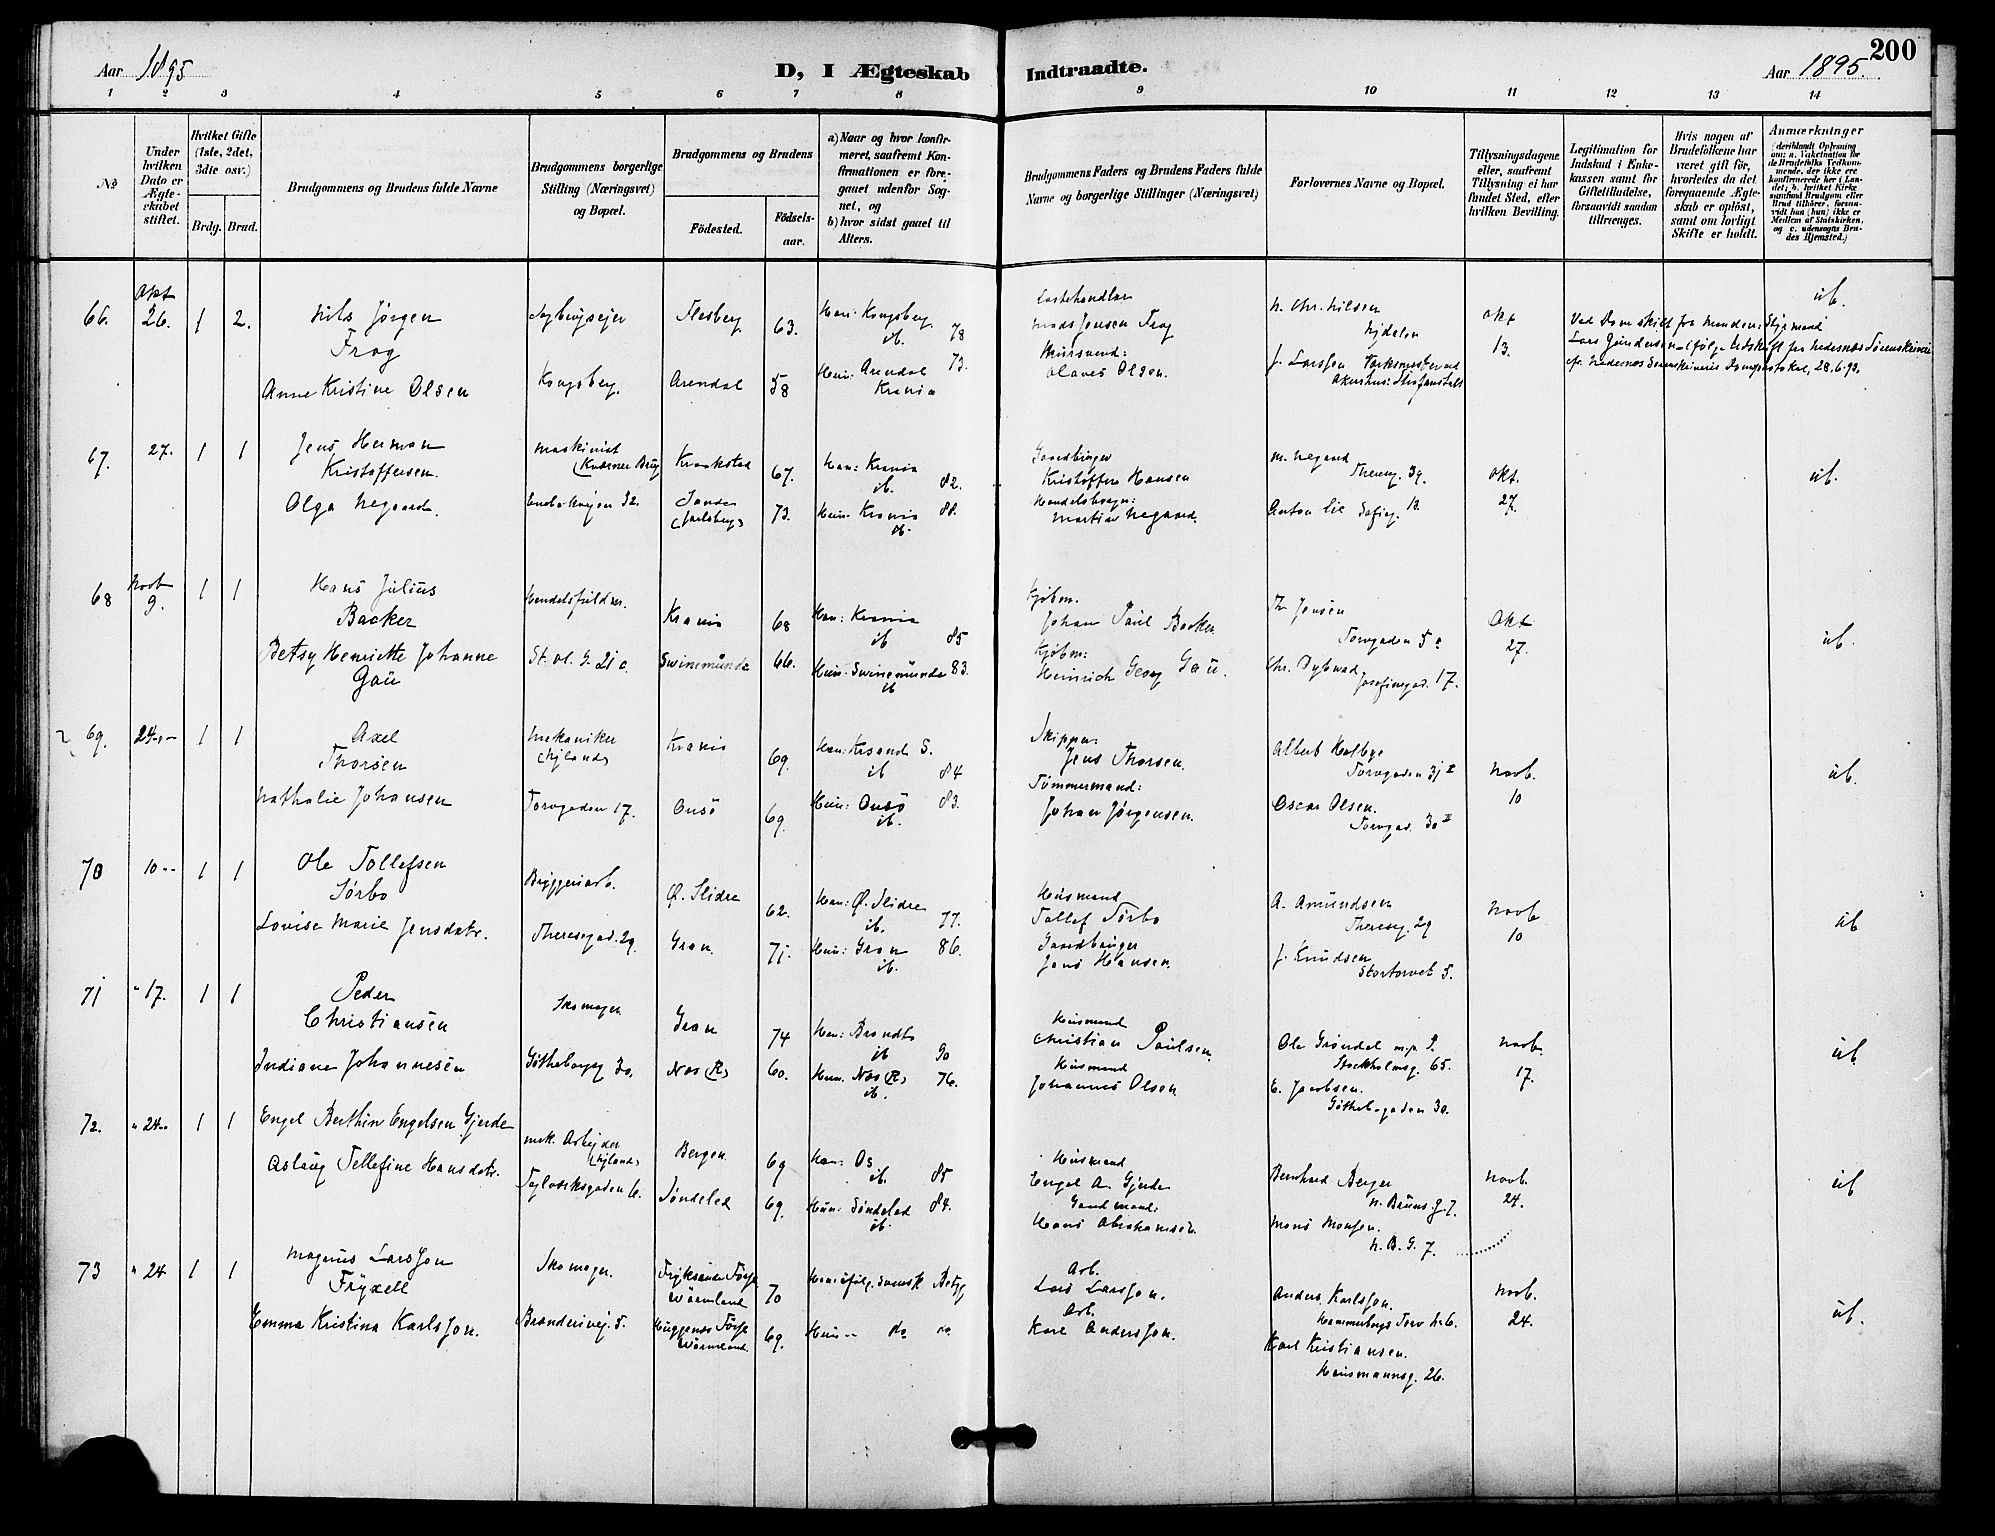 Aar 1895
D, I Ægteskab Indtraadte.
Aar 1895.
200
1 2 3 4 5 6 7 8 9 10 11 12 13 14
No
Under hvilken Dato er Ægteskabet stiftet.
Hvilket Gifte (1ste, 2det, 3die osv.)
Brdg. Brud.
Brudgommens og Brudens fulde Navne
Brudgommens borgerlige Stilling (Næringsvei) og Bopæl.
Brudgommens og Brudens
Fødested.
Fødselsaar.
a) Naar og hvor konfirmeret, saafremt Konfirmationen er foregaaet udenfor Sognet, og
b) hvor sidst gaaet til Alters.
Brudgommens Faders og Brudens Faders fulde Navne og borgerlige Stillinger (Næringsvei)
Forlovernes Navne og Bopæl.
Tillysningsdagene eller, saafremt Tillysning ei har fundet Sted, efter hvilken Bevilling.
Legitimation for Indskud i Enkekassen samt for Giftetilladelse, forsaavidt saadan tiltrænges.
Hvis nogen af Brudefolkene har været gift før, hvorledes da det foregaaende Ægteskab er opløst, samt om lovligt Skifte er holdt.
Anmærkninger
(deriblandt Oplysning om: a. Vaccination for de Brudefolks Vedkommende, der ikke ere konfirmerede her i Landet; b. hvilket Kirkesamfund Brudgom eller Brud tilhører, forsaavidt han (hun) ikke er Medlem af Statskirken, og c. udensogns Brudes Hjemsted.)
66. Okt 26. 1 2.
Nils Jörgen
Frog
Anne Kristine Olsen
Kongsberg.
Flesberg 63.
Arendal 58
Han: Kongsberg. 78
ib.
Hun: Arendal 73.
Krania
Mads Jensen Frog
Olaves Olsen.
N. Chr. Nilsen
J. Larssen Værksmester ved
Akershus: Strafanstalt
Okt
13.
ib.
67. 27. 1 1
Jens Herman
Kristoffersen.
Olga Negaard.
Maskinist
(Kværner Brug
Enebakvejen 32.
Kraakstad 67.
Sande
(Jarlsberg) 73.
Han: Krania
ib. 82.
Hun: Krania 88.
ib.
Gaardbruger
Kristoffer Hansen
Martin Negaard.
M. Negaard
Thereseg. 39.
Anton Lie Sofieg. 13.
Okt.
27.
ib.
68 Novb 9. 1 1
Hans Julius
Backer
Betsy Henriette Johanne
Gaü
Handelsfuldm.
St. Ol. G. 21 c.
Krania 68
Swinemünde 66.
Han: Krania
ib 85
Hun: Swinemünde 83.
ib
Kjøbm.
Johan Paul Backer
Kjøbm:
Heinrich Georg Gaü.
Th. Jensen
Torvgaden 5 c
Chr. Dybwad
Josefinegad. 17.
Okt
27.
ib.
69. 24 1 1
Axel
Thorsen
Nathalie Johansen
Mekaniker
(Nyland)
Torvgaden 17.
Krania 69.
Onsö 69.
Han: Krsand S.
ib 84
Hun: Onsö 83.
ib.
Skipper:
Jens Thorsen.
Tømmermand:
Johan Jørgensen.
Albert Kolbye
Torvgaden 31 II
Oscar Olsen.
Torvgad. 30 II
Novb.
10
ib.
70 10 1 1
Ole Tollefsen
Sørbo
Lovise Marie Jensdatr.
Bryggeriarb.
Theresegad. 29.
Ø. Slidre 62.
Gran. 71.
Han: Ø. Slidre
ib. 77.
Hun: Gran 86.
ib.
Husmand
Tollef Sørbo
Gaardbruger
Jens Hansen.
A. Amundsen
Thereseg. 29
J. Knudsen
Stortorvet 5.
Novb
10
ib
71 " 17. 1 1
Peder
Christiansen
Indiane Johannesen
Skomager
Götheborgg 30.
Gran 74
Næs (R) 60.
Han: Brandbu
ib 90
Hun: Næs (R) 76.
ib.
Husmand
Christian Paulsen.
Husmand
Johannes Olsen
Ole Grøndal m.p. P.
Stockholmsg. 65.
E. Jacobsen.
Götheb-gaden 30.
Novb.
17.
ib
72. " 24 1 1
Engel Berthin Engelsen Gjerde
Aslaug Tellefine Hansdatr.
mek. Arbejder
(Nyland)
Teglværksgaden 6.
Bergen. 69
Søndeled 69.
Han: Os.
ib. 85
Hun: Søndeled 84.
ib.
Husmand
Engel A. Gjerde
Gaardmand:
Hans Abrahamsen.
Bernhard Berger
N. Bruns. G. 7.
Mons Monsen.
N. B. G. 7.
Novb.
24.
ib
73 " 24 1 1
Magnus Larsson
Fryxell
Emma Kristina Karlsson.
Skomager.
Brænderivej. 5.
Fryksände Førs.
Wärmland 70
Wärmland. 69.
Han ifølg. svensk Betyg
Hun -- do do.
Arb.
Lars Larsson.
Arb.
Karl Andersson.
Anders Karlsson.
Hammerborgs Torv N. 6.
Karl Kristiansen.
Hausmannsg. 26.
Novb.
24.
ib.